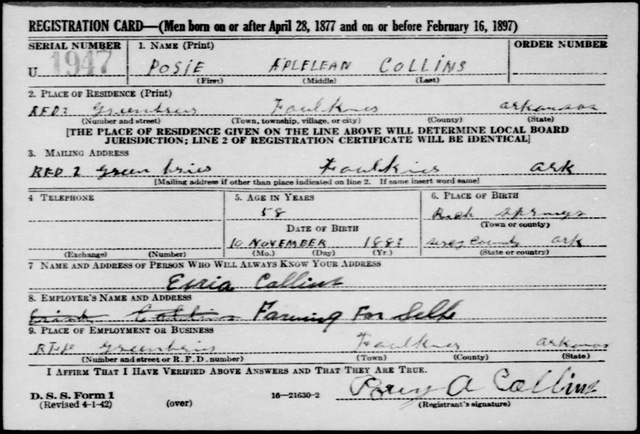 REGISTRATION CARD—(Men born on or after April 28, 1877 and on or before February 16, 1897)
SERIAL NUMBER 1. NAME (Print) ORDER NUMBER
U 1947 POSIE APLELEAN COLLINS
(First) (Middle) (Last)
2. PLACE OF RESIDENCE (Print)
RFD 2 Greenbrier Faulkner arkansas
(Number and street) (Town, township, village, or city) (County) (State)
[THE PLACE OF RESIDENCE GIVEN ON THE LINE ABOVE WILL DETERMINE LOCAL BOARD
JURISDICTION; LINE 2 OF REGISTRATION CERTIFICATE WILL BE IDENTICAL]
3. MAILING ADDRESS
RFD 2 Green brier Faulkner ark
[Mailing address if other than place indicated on line 2. If same insert word same]
4 TELEPHONE 5. AGE IN YEARS 6. PLACE OF BIRTH
58
DATE OF BIRTH (Town or county)
10 NOVEMBER 1883 County ark
(Exchange) (Number) (Mo.) (Day) (Yr.) (State or country)
7 NAME AND ADDRESS OF PERSON WHO WILL ALWAYS KNOW YOUR ADDRESS
Collins
8. EMPLOYER'S NAME AND ADDRESS
Farming For Selfe
9. PLACE OF EMPLOYMENT OR BUSINESS
Greenbrier Faulkner arkansas
(Number and street or R. F. D. number) (Town) (County) (State)
I AFFIRM THAT I HAVE VERIFIED ABOVE ANSWERS AND THAT THEY ARE TRUE.
D. S. S. Form 1
(Revised 4-1-42) (over) 16—21630-2 A Collins
(Registrant's signature)